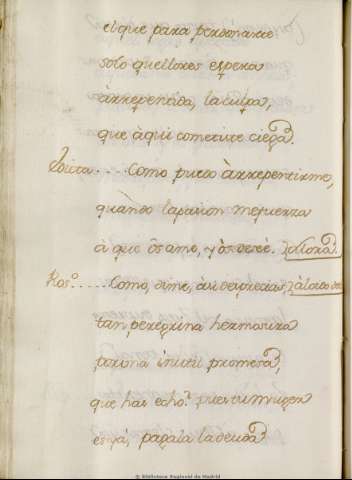 el que para perdonarte
solo que llores espera
àrrepentida, la culpa,
que àqui cometiste ciega.
Como puedo àrrepentirme,
quàndo la pasion me fuerza
à que ôs ame, y ôs desee. llora.
Ros.º Como, dime, àsi desprecias àl oido
tan peregrina hermosura
por una inutil promesa,
que has echo? pues tu muger
està, pagala la deuda
© Biblioteca Regional de Madrid